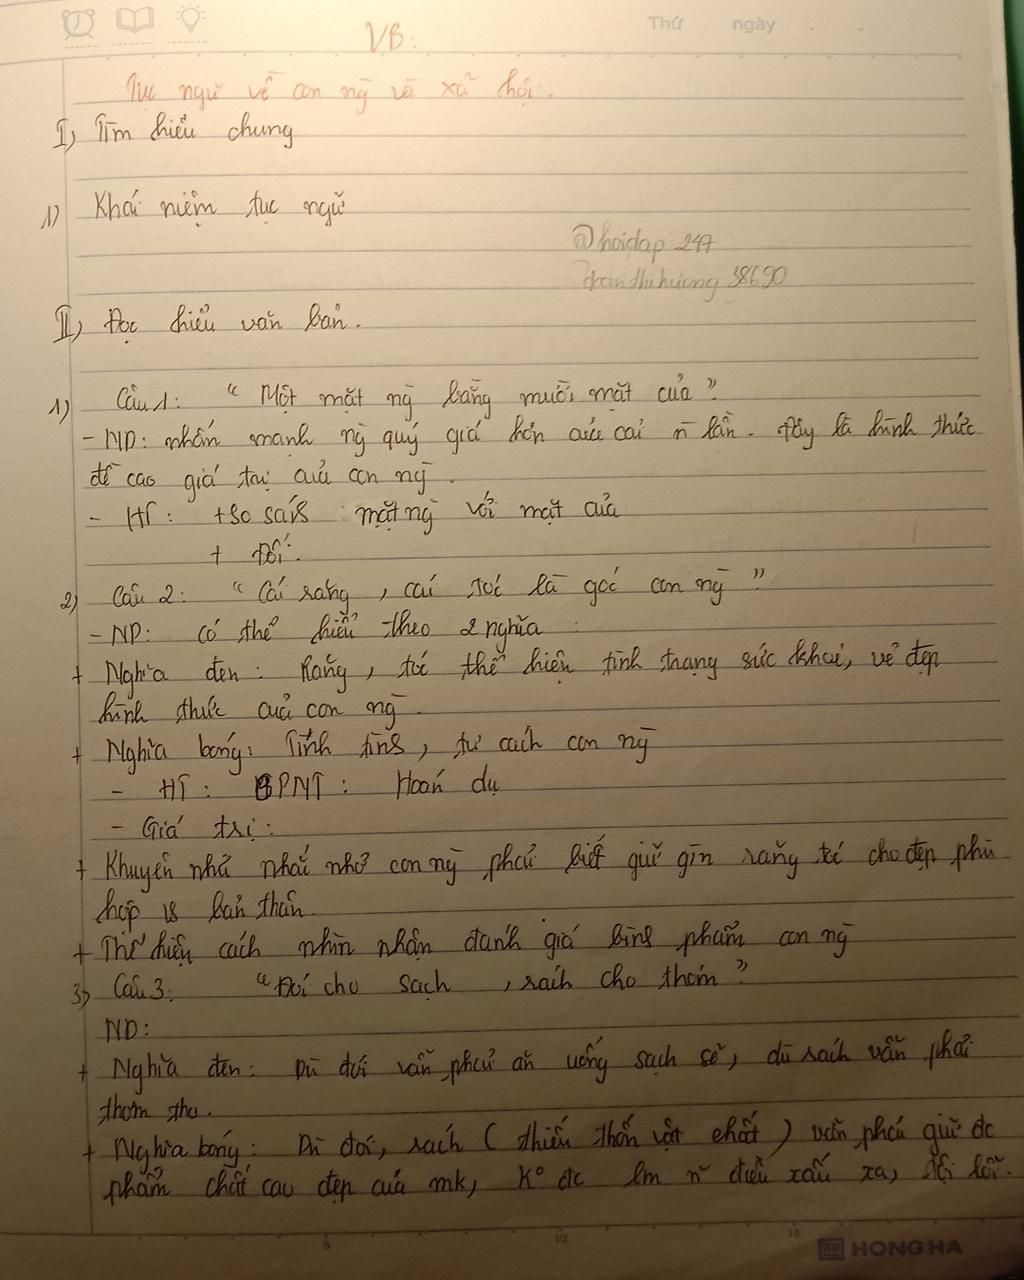 Thứ ngày
VB:
Tục ngữ về con ng̀ và xã hội.
I, Tìm hiểu chung
1) Khái niệm tục ngữ
@hoidap 247
tranthihuong 38690
II, Đọc hiểu văn bản.
1) Câu 1: "Một mặt ng̀ bằng mười mặt của"
- ND: nhấn mạnh ng̀ quý giá hơn của cải n̄ lần. Đây là hình thức
đề cao giá trị của con ng̀.
- HT: +So sánh mặt ng̀ với mặt của
+ Đối.
2) Câu 2: "Cái răng, cái tóc là góc con ng̀"
- ND: có thể hiểu theo 2 nghĩa :
+ Nghĩa đen: Răng, tóc thể hiện tình trạng sức khoẻ, vẻ đẹp
hình thức của con ng̀.
+ Nghĩa bóng: Tính tình, tư cách con ng̀
- HT: BPNT: Hoán dụ
- Giá trị:
+ Khuyên nhủ nhắc nhở con ng̀ phải biết giữ gìn răng tóc cho đẹp phù
hợp vs bản thân.
+ Thể hiện cách nhìn nhận đánh giá bình phẩm con ng̀
3) Câu 3: "Đói cho sạch, rách cho thơm"
ND:
+ Nghĩa đen: Dù đói vẫn phải ăn uống sạch sẽ, dù rách vẫn phải
thơm tho.
+ Nghĩa bóng: Dù đói, rách (thiếu thốn vật chất) vẫn phải giữ đc
phẩm chất cao đẹp của mk, K° đc lm n~ điều xấu xa, tội lỗi.
5 10 15
HONG HA